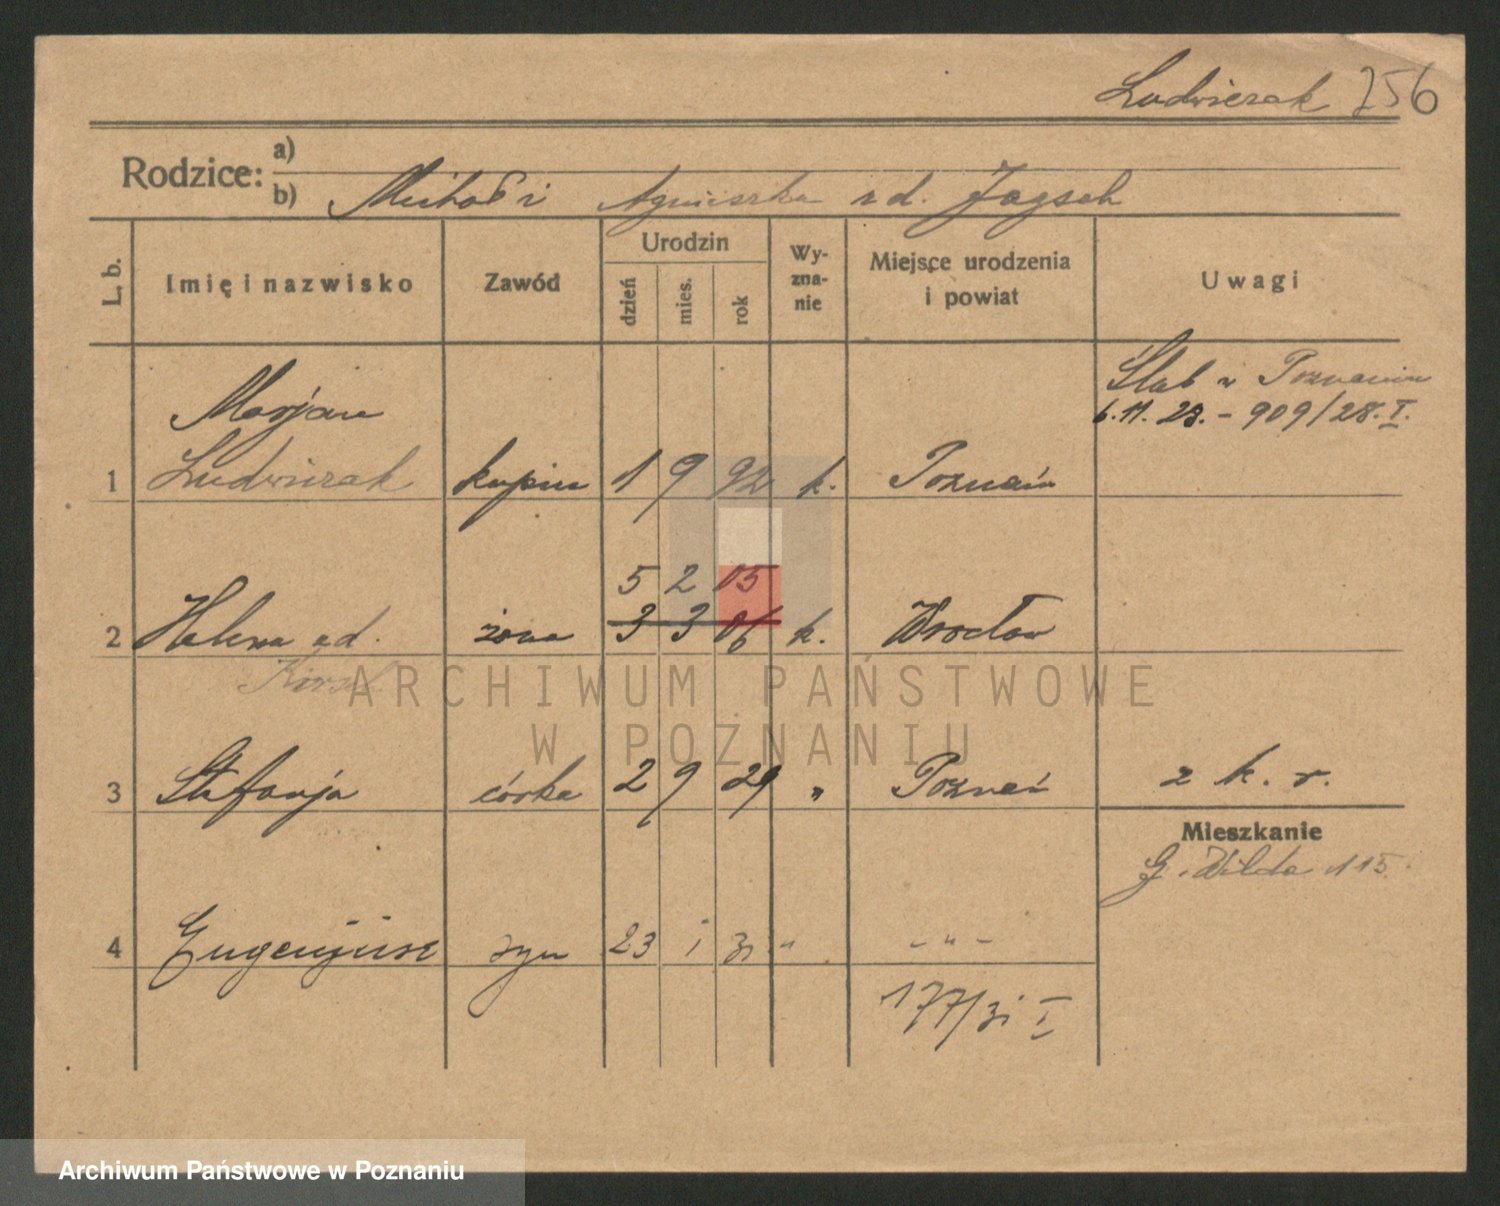 Ludwiczak 256
Rodzice: a)
b) Michał i Agnieszka zd. Jagsch
L. b.
Imię i nazwisko
Zawód
Urodzin
dzień
mies.
rok
Wy-
zna-
nie
Miejsce urodzenia
i powiat
Uwagi
Ślub w Poznaniu
6.11.28. - 909/28. I.
Marjan
1 Ludwiczak kupiec 1 9 92 k. Poznań
5 2 05
2 Helena zd. żona 3 3 06 k. Wrocław
3 Stefanja córka 2 9 29 " Poznań z k. r.
Mieszkanie
G. Wilda 115.
4 Eugenjusz syn 23 1 31 " - " -
177/31 I
ARCHIWUM PAŃSTWOWE
W POZNANIU
Archiwum Państwowe w Poznaniu